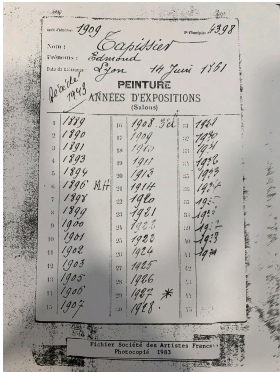 Date d'Admission : 1909 N° d'Inscription : 4398
Nom : Tapissier
Prénoms : Edmond
Date de naissance : Lyon 14 Juin 1861
Décédé 1943
PEINTURE
ANNÉES D'EXPOSITIONS
(Salons)
1 1889 16 1908 31
2 1890 17 1909 32
3 1891 18 1910 33
4 1893 19 1911 34 1932
5 1894 20 1913 35 1933
6 21 1914 36 1934
7 1898 22 1920 37
8 1899 23 1921 38
9 1900 24 1922 39
10 1901 25 1923 40
11 1902 26 1924 41
12 1903 27 1925 42
13 1905 28 1926 43
14 1906 29 1927 * 44
15 1907 30 1928 45
Fichier Société des Artistes Franc
Photocopié 1983